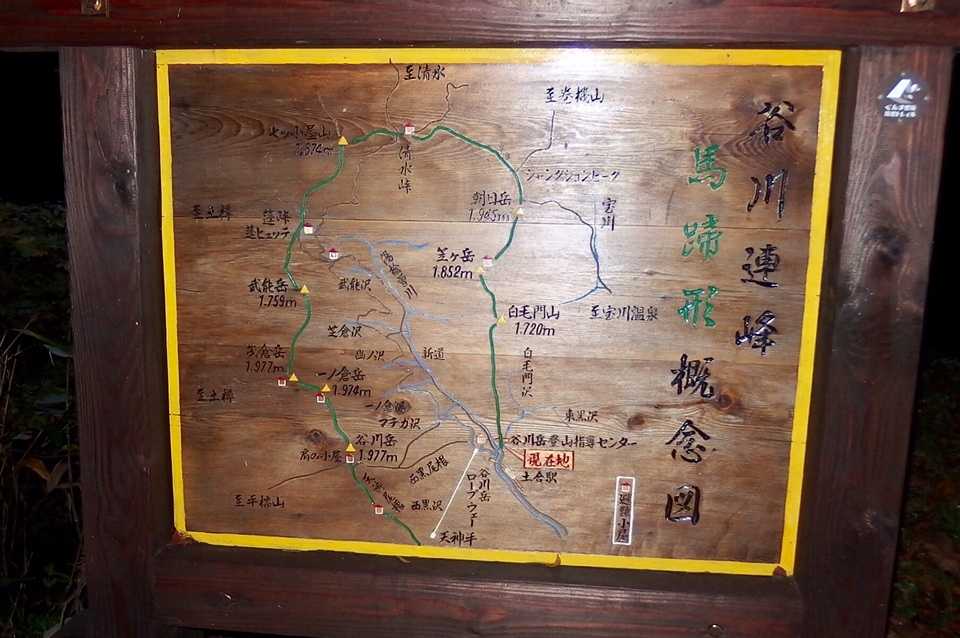 谷川連峰
馬蹄形
概念図
至清水
至巻機山
七ッ小屋山
1.674m
清水峠
ジャンクションピーク
朝日岳
1.945m
宝川
至土樽
蓬峠
蓬ヒュッテ
笠ヶ岳
1.852m
湯桧曽川
武能岳
1.759m
武能沢
白毛門山
1.720m
至宝川温泉
笠倉沢
茂倉岳
1.977m
幽ノ沢
新道
白毛門沢
一ノ倉岳
1.974m
至土樽
一ノ倉沢
マチガ沢
東黒沢
谷川岳
1.977m
肩の小屋
谷川岳登山指導センター
現在地
土合駅
西黒尾根
谷川岳
ロープウェー
天神尾根
西黒沢
至平標山
天神平
避難小屋